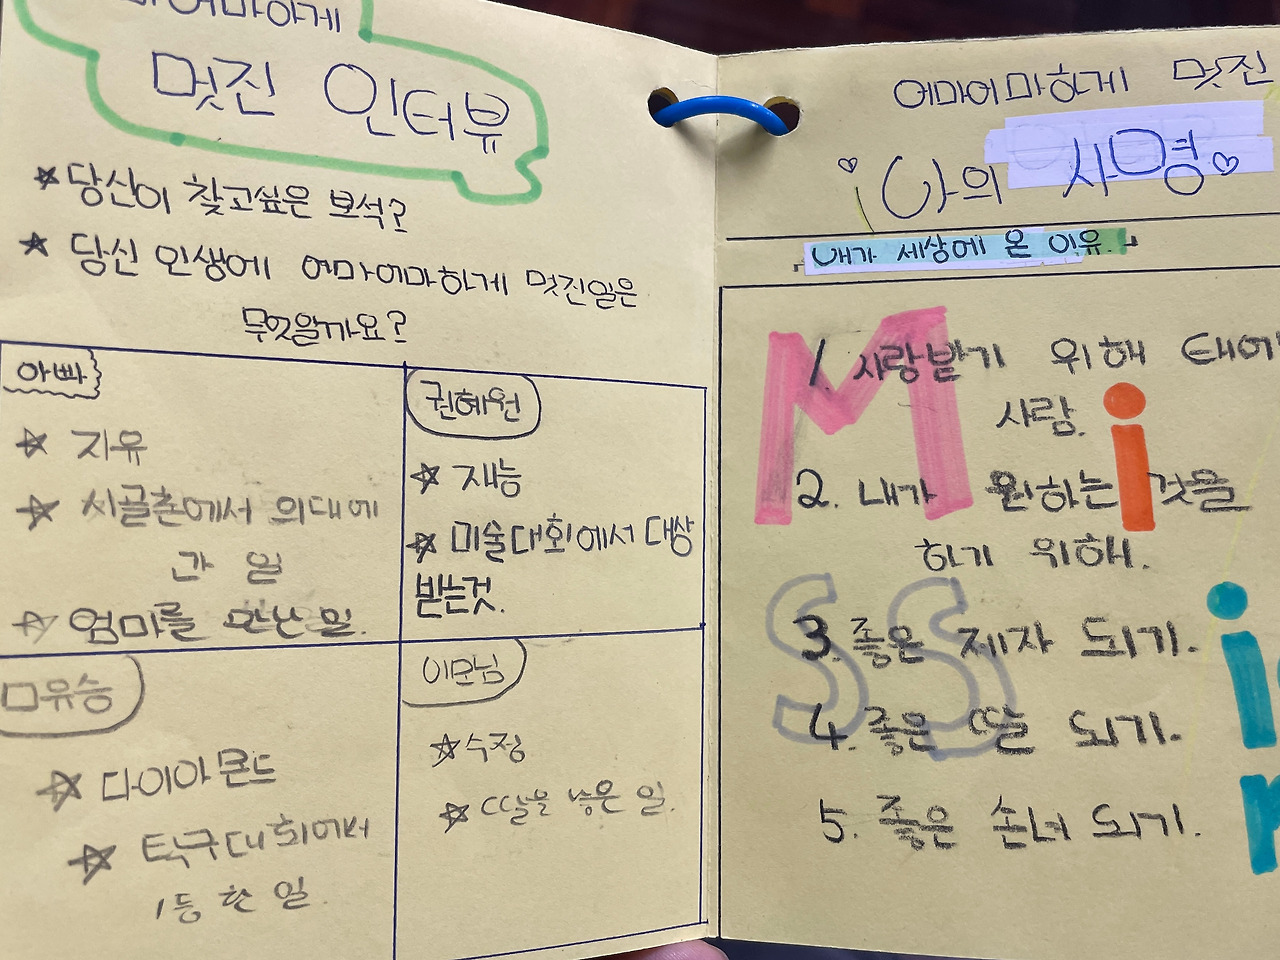 어마어마하게
멋진 인터뷰
★당신이 찾고싶은 보석?
★ 당신 인생에 어마어마하게 멋진일은
무엇일까요?
아빠
☆ 자유
☆ 시골촌에서 의대에
간 일
☆ 엄마를 만난 일.
권혜원
☆ 재능
☆ 미술대회에서 대상
받는것.
유승
☆ 다이아몬드
☆ 탁구대회에서
1등 한 일.
이모님
☆수정
☆ 딸을 낳은 일.
어마어마하게 멋진
♡ 나의 사명♡
내가 세상에 온 이유.
Mission
1. 사랑받기 위해 태어
사람.
2. 내가 원하는 것을
하기 위해.
3. 좋은 제자 되기.
4. 좋은 딸 되기.
5. 좋은 손녀 되기.